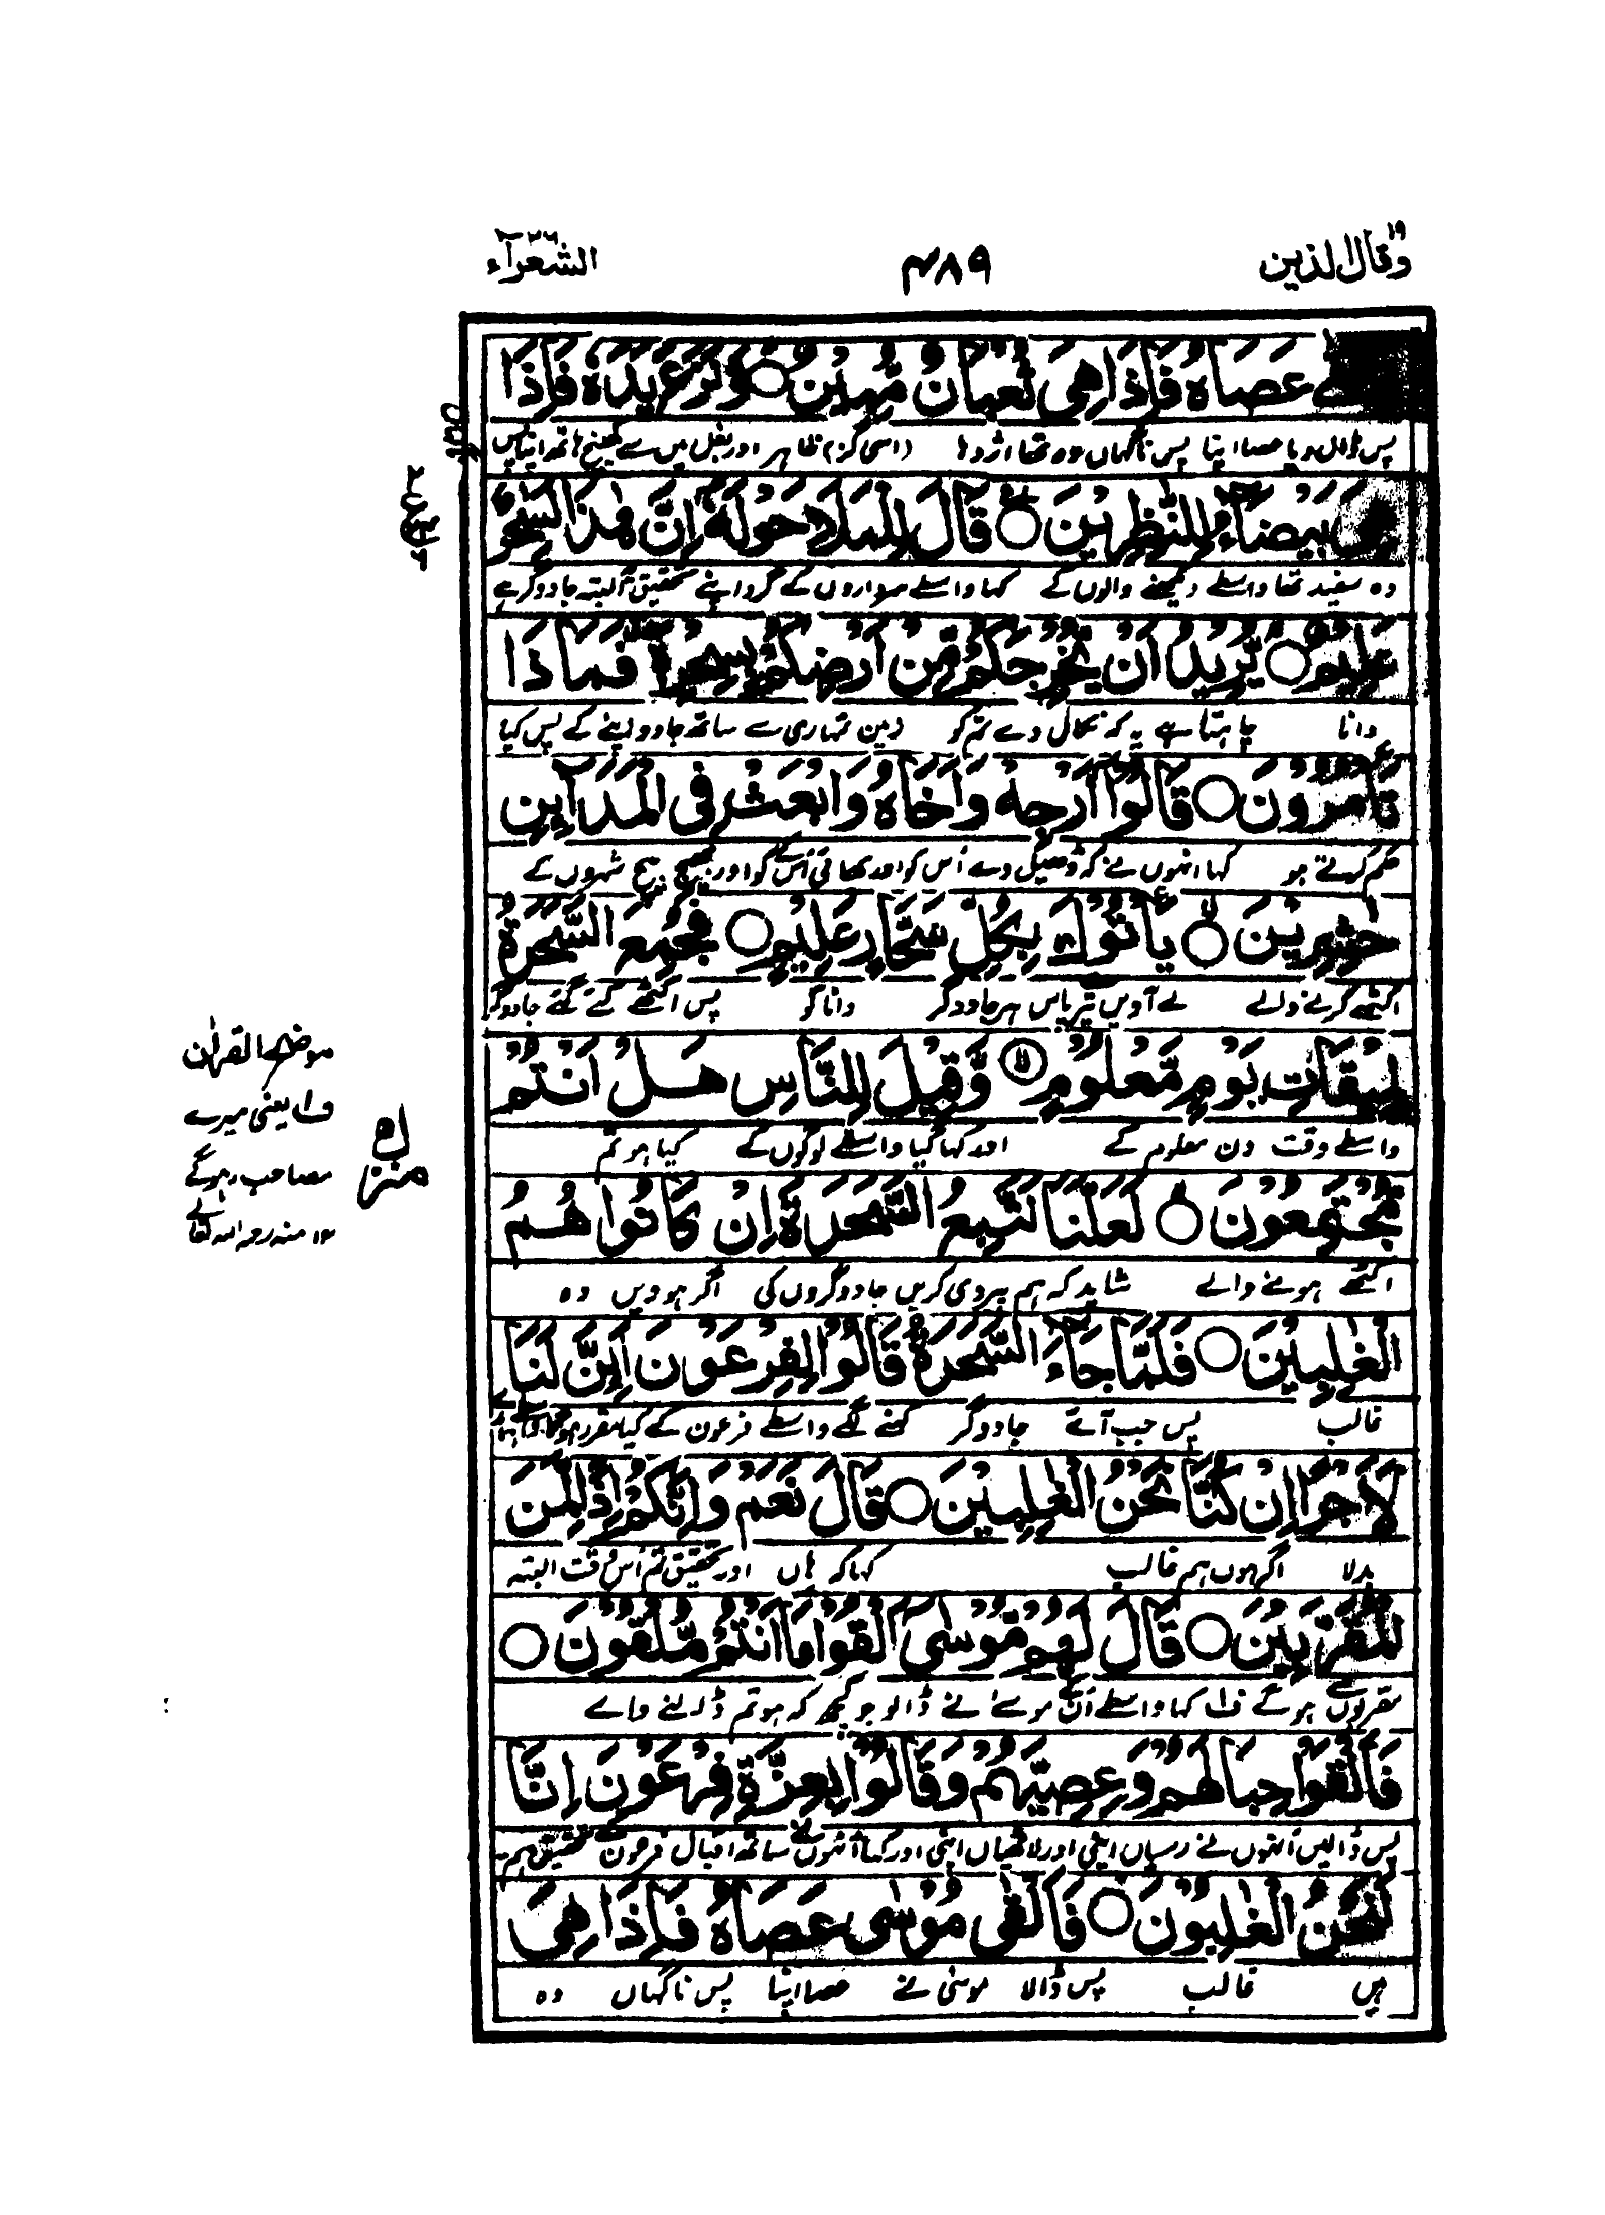 وقال الذین ۱۹
۴۸۹
الشعرآء ۲۶
عَصَاهُ فَاِذَا هِیَ ثُعْبَانٌ مُّبِیْنٌ ○ وَّنَزَعَ یَدَهٗ فَاِذَا
پس ڈال دیا عصا اپنا پس ناگہاں وہ تھا اژدہا ظاہر اور بغل میں سے کھینچ ہاتھ اپنا پس
هِیَ بَیْضَآءُ لِلنّٰظِرِیْنَ ○ قَالَ لِلْمَلَاِ حَوْلَهٗۤ اِنَّ هٰذَا لَسٰحِرٌ
وہ سفید تھا واسطے دیکھنے والوں کے کہا واسطے سرداروں کے گرد اپنے تحقیق البتہ جادوگر ہے
عَلِیْمٌ ○ یُّرِیْدُ اَنْ یُّخْرِجَكُمْ مِّنْ اَرْضِكُمْ بِسِحْرِهٖ فَمَا ذَا
دانا چاہتا ہے یہ کہ نکال دے تم کو زمین تمہاری سے ساتھ جادو اپنے کے پس کیا
تَاْمُرُوْنَ ○ قَالُوْۤا اَرْجِهْ وَاَخَاهُ وَابْعَثْ فِی الْمَدَآىِٕنِ
حکم کرتے ہو کہا انہوں نے کہ ڈھیل دے اُس کو اور بھائی اُس کے کو اور بھیج بیچ شہروں کے
حٰشِرِیْنَ ○ یَاْتُوْكَ بِكُلِّ سَحَّارٍ عَلِیْمٍ ○ فَجُمِعَ السَّحَرَةُ
اکٹھے کرنے والے لے آویں تیرے پاس ہر جادوگر دانا کو پس اکٹھے کئے گئے جادوگر
لِمِیْقَاتِ یَوْمٍ مَّعْلُوْمٍ ○ وَّقِیْلَ لِلنَّاسِ هَلْ اَنْتُمْ
واسطے وقت دن معلوم کے اور کہا گیا واسطے لوگوں کے کیا ہو تم
مُّجْتَمِعُوْنَ ○ لَعَلَّنَا نَتَّبِعُ السَّحَرَةَ اِنْ كَانُوْا هُمُ
اکٹھے ہونے والے شاید کہ ہم پیروی کریں جادوگروں کی اگر ہوویں وہ
الْغٰلِبِیْنَ ○ فَلَمَّا جَآءَ السَّحَرَةُ قَالُوْا لِفِرْعَوْنَ اَىِٕنَّ لَنَا
غالب پس جب آئے جادوگر کہنے لگے واسطے فرعون کے کیا مقرر
لَاَجْرًا اِنْ كُنَّا نَحْنُ الْغٰلِبِیْنَ ○ قَالَ نَعَمْ وَاِنَّكُمْ اِذًا لَّمِنَ
بدلا اگر ہوں ہم غالب کہا کہ ہاں اور تحقیق تم اُس وقت البتہ
الْمُقَرَّبِیْنَ ○ قَالَ لَهُمْ مُّوْسٰۤی اَلْقُوْا مَاۤ اَنْتُمْ مُّلْقُوْنَ ○
مقربوں سے ہو گے ف۱ کہا واسطے اُن کے موسےٰ نے ڈالو جو کچھ کہ ہو تم ڈالنے والے
فَاَلْقَوْا حِبَالَهُمْ وَعِصِیَّهُمْ وَقَالُوْا بِعِزَّةِ فِرْعَوْنَ اِنَّا
پس ڈالیں اُنہوں نے رسیاں اپنی اور لاٹھیاں اپنی اور کہا اُنہوں نے ساتھ اقبال فرعون کے تحقیق ہم
لَنَحْنُ الْغٰلِبُوْنَ ○ فَاَلْقٰی مُوْسٰی عَصَاهُ فَاِذَا هِیَ
ہیں غالب پس ڈالا موسٰی نے عصا اپنا پس ناگہاں وہ
موضح القراٰن
ف۱ یعنی میرے
مصاحب رہو گے
۱۲ منہ رحمہ اللہ تعالٰے
منزل ۵